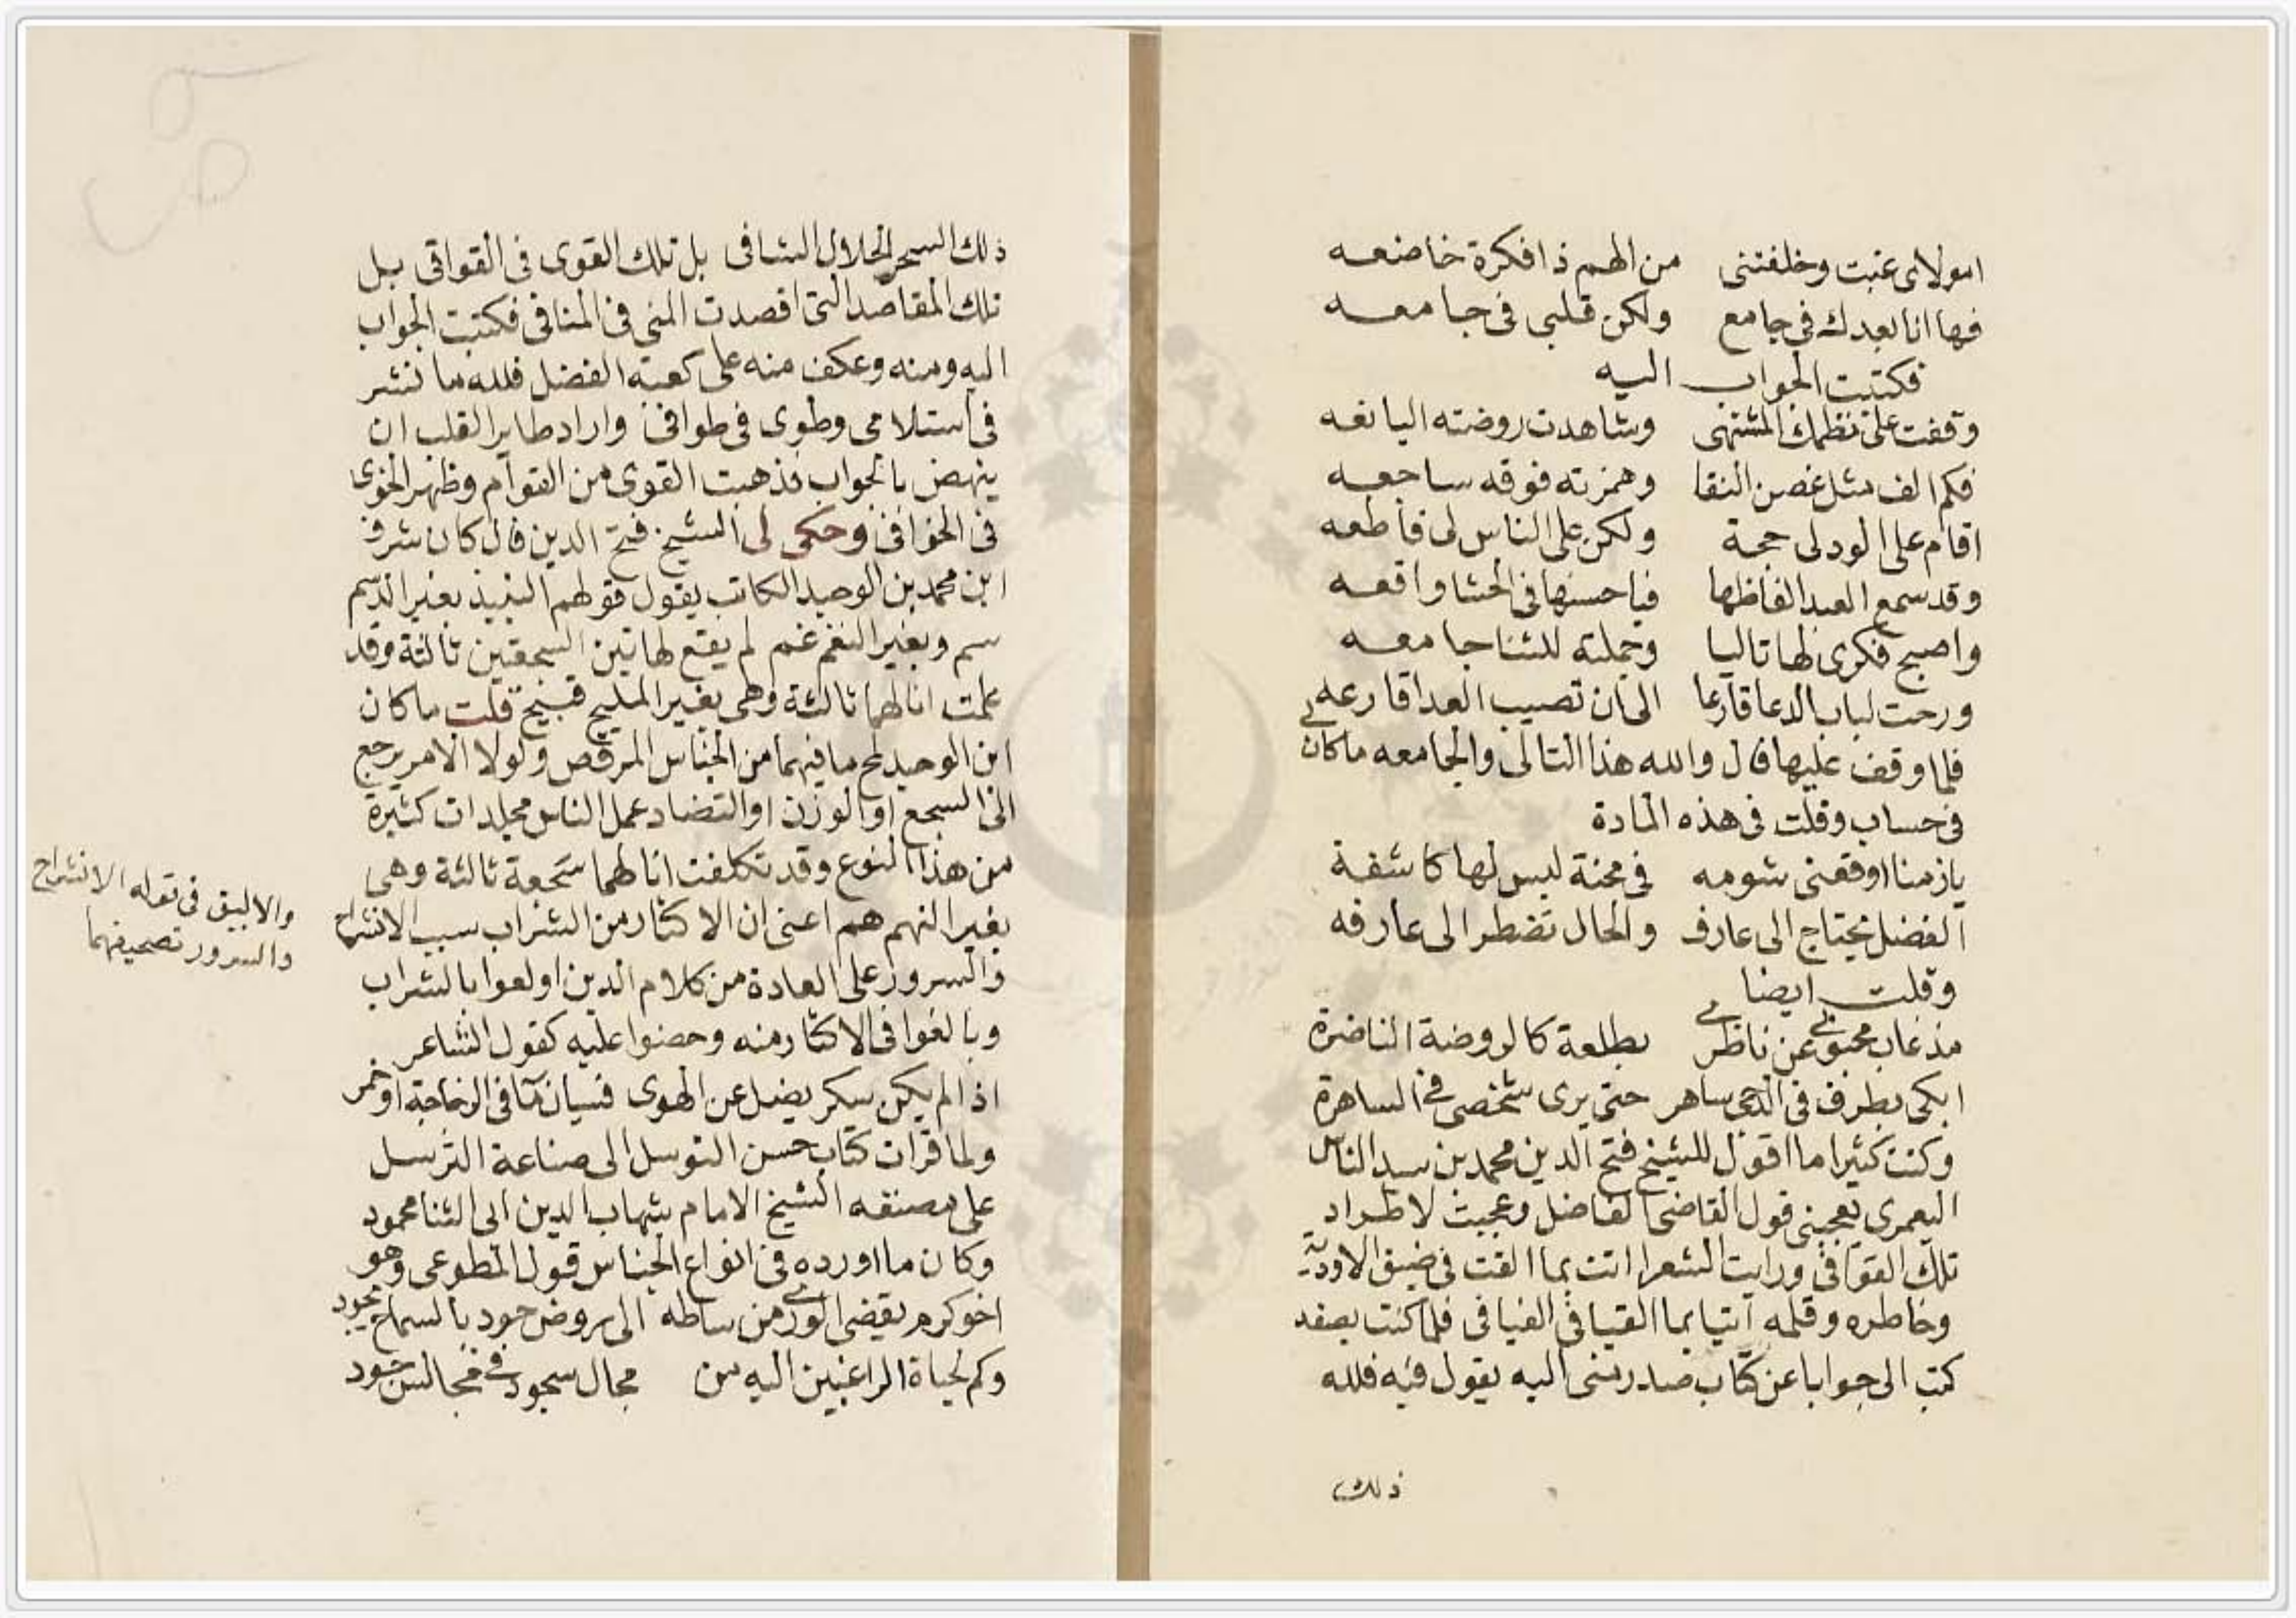 امولاى غبت وخلفتنى من الهم ذا فكرة خاضعه
فها انا بعدك فى جامع ولكن قلبى فى جامعه
فكتبت الجواب اليه
وقفت على نظمك المشتهى وشاهدت روضته اليانعه
فكم الف مثل غصن النقا وهمزته فوقه ساجعه
اقام على الود لى حجة ولكن على الناس لى قاطعه
وقد سمع العبد الفاظها فيا حسنها فى الحشا واقعه
واصبح فكرى لها تاليا وجملته للثنا جامعه
ورحت لباب الدعا قارعا الى ان تصيب العدا قارعه
فلما وقف عليها قال والله هذا التالى والجامعه ما كان لى
فى حساب وقلت فى هذه المادة
يا زمنا اوقعنى شومه فى محنة ليس لها كاشفة
الفضل يحتاج الى عارف والحال تضطر الى عارفه
وقلت ايضا
مذ غاب محبوبى عن ناظرى بطلعة كالروضة الناضرة
ابكى بطرف فى الدجى ساهر حتى يرى شخصى فى الساهرة
وكنت كثيرا ما اقول للشيخ فتح الدين محمد بن سيد الناس
اليعمرى يعجبنى قول القاضى الفاضل وعجبت لاطراد
تلك القوافى ورايت الشعرا اتت بما القت فى ضيق الاودية
وخاطره وقلمه اتيا بما القيا فى الفيافى فلما كنت بصفد
كتب الى جوابا عن كتاب صدر منى اليه يقول فيه فلله
ذلك
ذلك السحر الحلال الشافى بل تلك القوى فى القوافى بل
تلك المقاصد التى اقصدت المنى فى المنافى فكتبت الجواب
اليه ومنه وعكف منه على كعبة الفضل فلله ما نشر
فى استلامى وطوى فى طوافى واراد طاير القلب ان
ينهض بالجواب فذهبت القوى من القوادم وظهر الخوى
فى الخوافى وحكى لى الشيخ فتح الدين قال كان شرف
ابن محمد بن الوحيد الكاتب يقول قولهم النبيذ بغير الدسم
سم وبغير النغم غم لم يقع لهاتين السجعتين ثالثة وقد
علمت انا لهما ثالثة وهى بغير المليح قبيح قلت ما كان
ابن الوحيد لمح ما فيهما من الجناس المرقص ولولا الامر يرجع
الى السجع او الوزن او التضاد عمل الناس مجلدات كثيرة
من هذا النوع وقد تكلفت انا لهما سجعة ثالثة وهى
بغير النهم هم اعنى ان الاكثار من الشراب سبب الانشراح
والسرور على العادة من كلام الذين اولعوا بالشراب
وبالغوا فى الاكثار منه وحضوا عليه كقول الشاعر
اذا لم يكن سكر يضل عن الهوى فسيان ما فى الزجاجة او خمر
ولما قرات كتاب حسن التوسل الى صناعة الترسل
على مصنفه الشيخ الامام شهاب الدين ابى الثنا محمود
وكان مما اورده فى انواع الجناس قول المطوعى وهو
اخو كرم يقضى الورى من بساطه الى روض جود بالسماح مجود
وكم لجباه الراغبين اليه من مجال سجود فى مجالس جود
والاليق فى قوله الانشراح
والسرور تصحيفهما